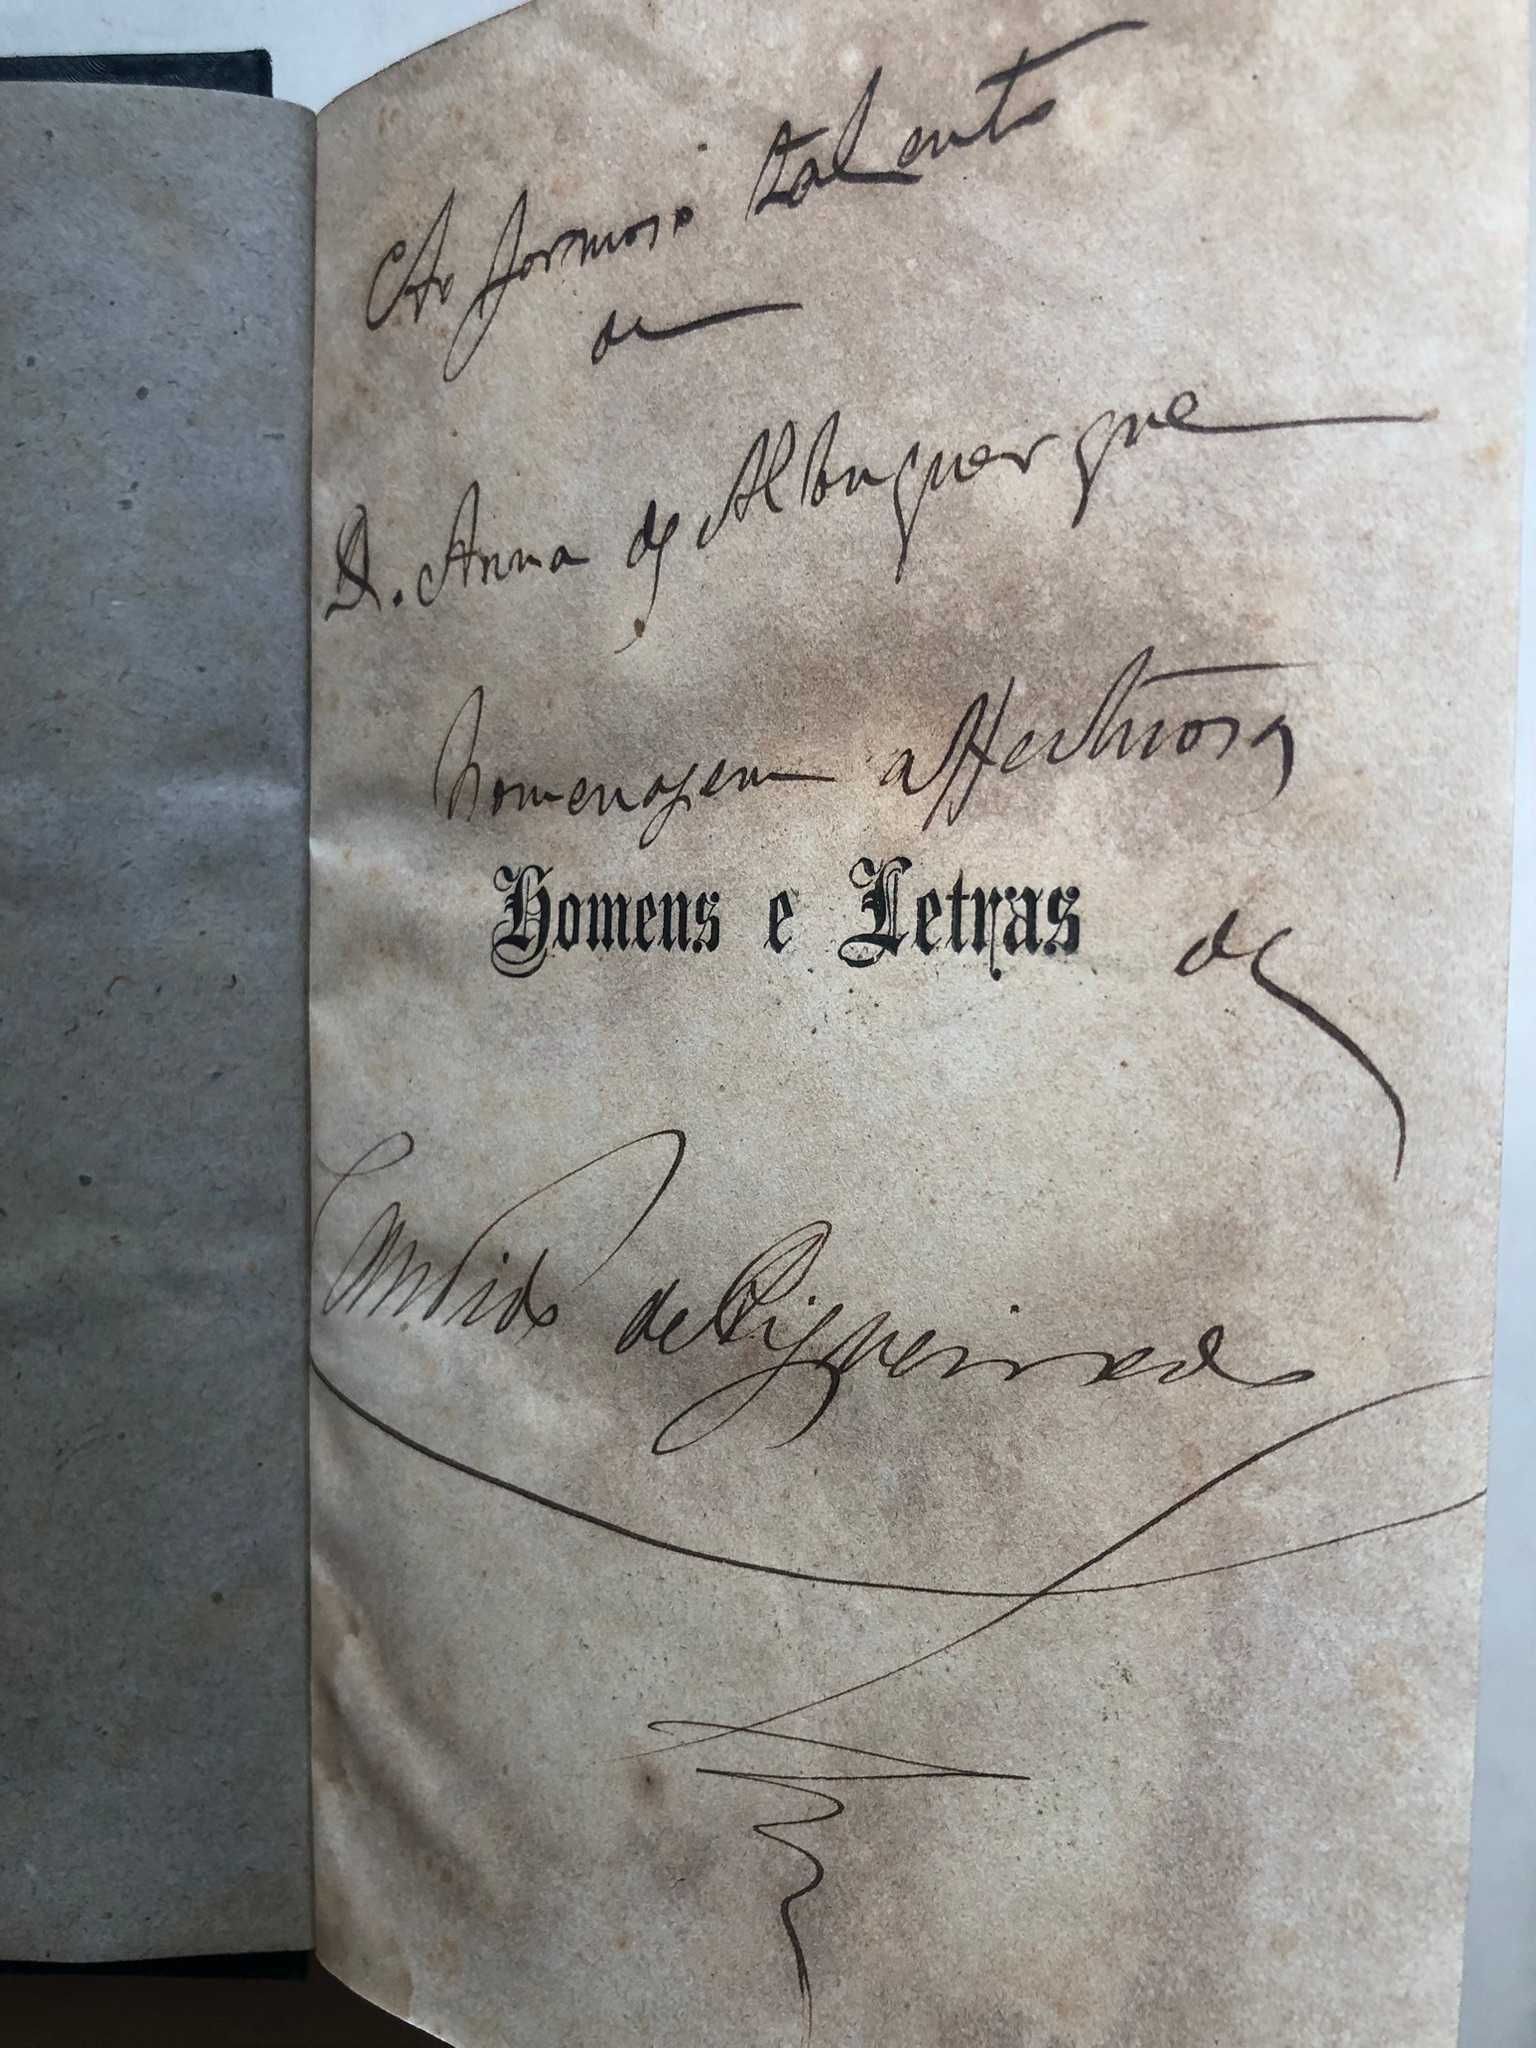 Ao formoso talento
de
D. Anna de Albuquerque
homenagem affectuosa
Homens e Letras de
Candido de Figueiredo